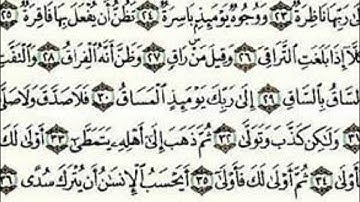 رَبِّهَا نَاظِرَةٌ ٢٣ وَوُجُوهٌ يَوْمَئِذٍ بَاسِرَةٌ ٢٤ تَظُنُّ أَن يُفْعَلَ بِهَا فَاقِرَةٌ ٢٥
كَلَّا إِذَا بَلَغَتِ التَّرَاقِيَ ٢٦ وَقِيلَ مَنْ رَاقٍ ٢٧ وَظَنَّ أَنَّهُ الْفِرَاقُ ٢٨ وَالْتَفَّتِ
السَّاقُ بِالسَّاقِ ٢٩ إِلَىٰ رَبِّكَ يَوْمَئِذٍ الْمَسَاقُ ٣٠ فَلَا صَدَّقَ وَلَا صَلَّىٰ
٣١ وَلَٰكِن كَذَّبَ وَتَوَلَّىٰ ٣٢ ثُمَّ ذَهَبَ إِلَىٰ أَهْلِهِ يَتَمَطَّىٰ ٣٣ أَوْلَىٰ لَكَ
فَأَوْلَىٰ ٣٤ ثُمَّ أَوْلَىٰ لَكَ فَأَوْلَىٰ ٣٥ أَيَحْسَبُ الْإِنسَانُ أَن يُتْرَكَ سُدًى ٣٦